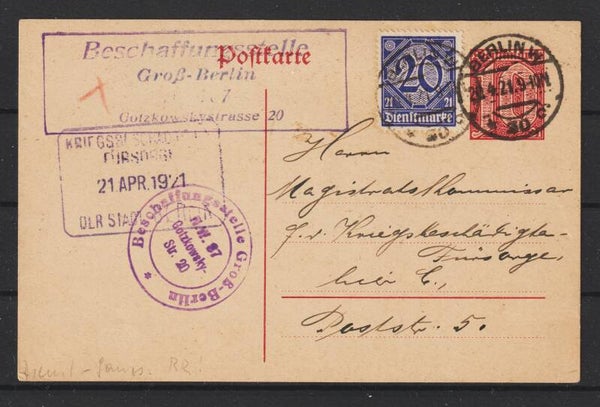 Beschaffungsstelle
Groß-Berlin
7
Gotzkowskystrasse 20
Postkarte
20
21 21
Dienstmarke
BERLIN W.
20.
KRIEGSBESCHÄDIGTEN
FÜRSORGE
21 APR. 1921
DER STADT BERLIN
Beschaffungsstelle Groß-Berlin
N.W. 87
Gotzkowsky-
Str. 20
Herrn
Magistratskommissar
f. d. Kriegsbeschädigte-
Fürsorge,
hier C.,
Poststr. 5.
Dienst-Ganzs. RR!